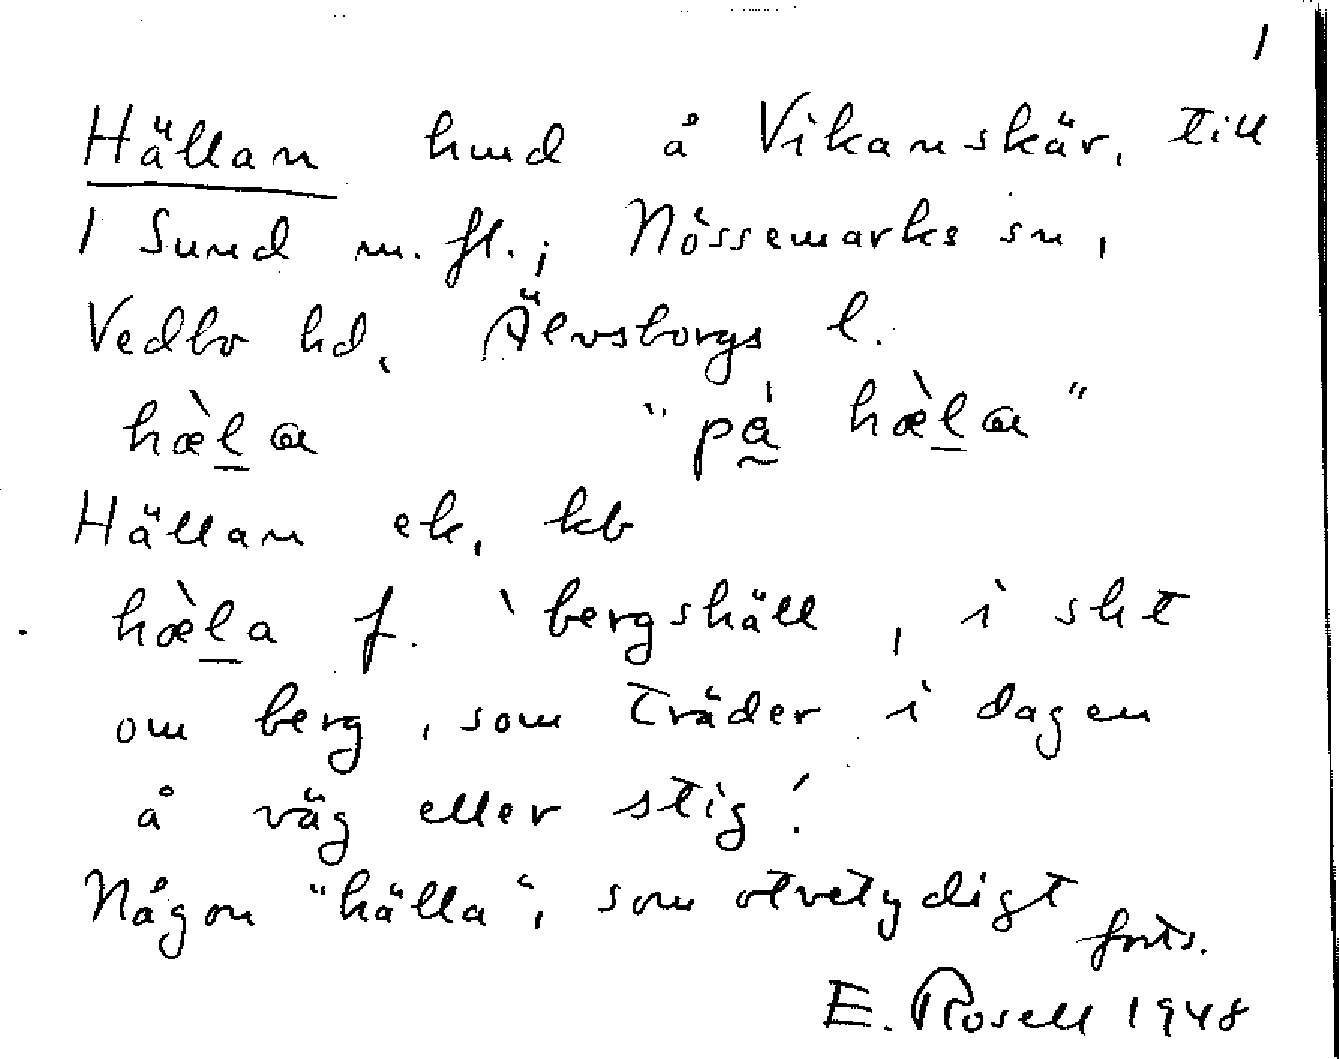 1
Hällan hmd å Vikanskär, till
1 Sund m. fl.; Nössemarks sn,
Vedbo hd, Älvsborgs l.
hæ̀l̲a "på hæ̀l̲a"
Hällan ek, kb
hæ̀l̲a f. 'bergshäll, i sht
om berg, som träder i dagen
å väg eller stig'.
Någon "hälla", som otvetydigt
forts.
E. Rosell 1948